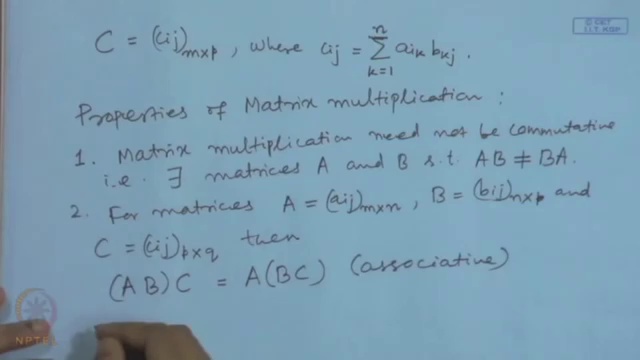 © CET
I.I.T. KGP
C = (cij)m×p , where cij = n∑k=1 aik bkj .
Properties of Matrix multiplication :
1. Matrix multiplication need not be commutative
i.e. ∃ matrices A and B s.t. AB ≠ BA.
2. For matrices A = (aij)m×n , B = (bij)n×p and
C = (cij)p×q then
(AB)C = A(BC) (associative)
NPTEL